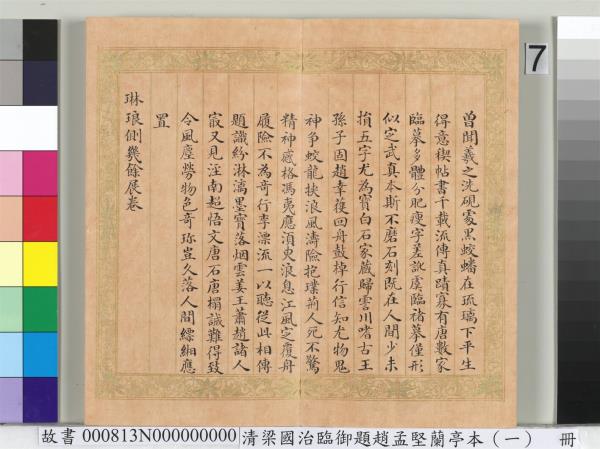 曾聞羲之洗硯處黑蛟蟠在琉璃下平生
得意稧帖書千載流傳真蹟寡有唐數家
臨摹多體分肥瘦字差訛虞臨褚摹僅形
似定武真本斯不磨石刻既在人間少未
損五字尤為寶白石家藏歸雲川嗜古王
孫子固趙幸獲回舟鼓棹行信知尤物鬼
神争蛟龍挾浪風濤險抱璞荊人死不驚
精神感格馮夷應須臾浪息江風定覆舟
履險不為奇行李漂流一以聽從此相傳
題識紛淋漓墨寶落烟雲姜王蕭趙諸人
寂又見汪南超悟文唐石唐搨誠難得致
令風塵勞物色奇珎豈久落人間縹緗應
置
琳琅側幾餘展卷
7
故書 000813N000000000 清梁國治臨御題趙孟堅蘭亭本（一） 冊